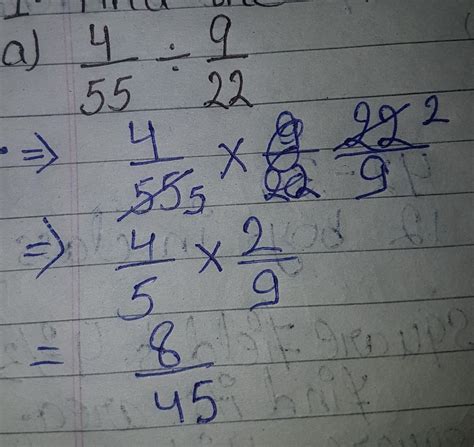 1. Find the
a) 4/55 ÷ 9/22
=> 4/55 5 × 9/22 22/9 2
=> 4/5 × 2/9
= 8/45